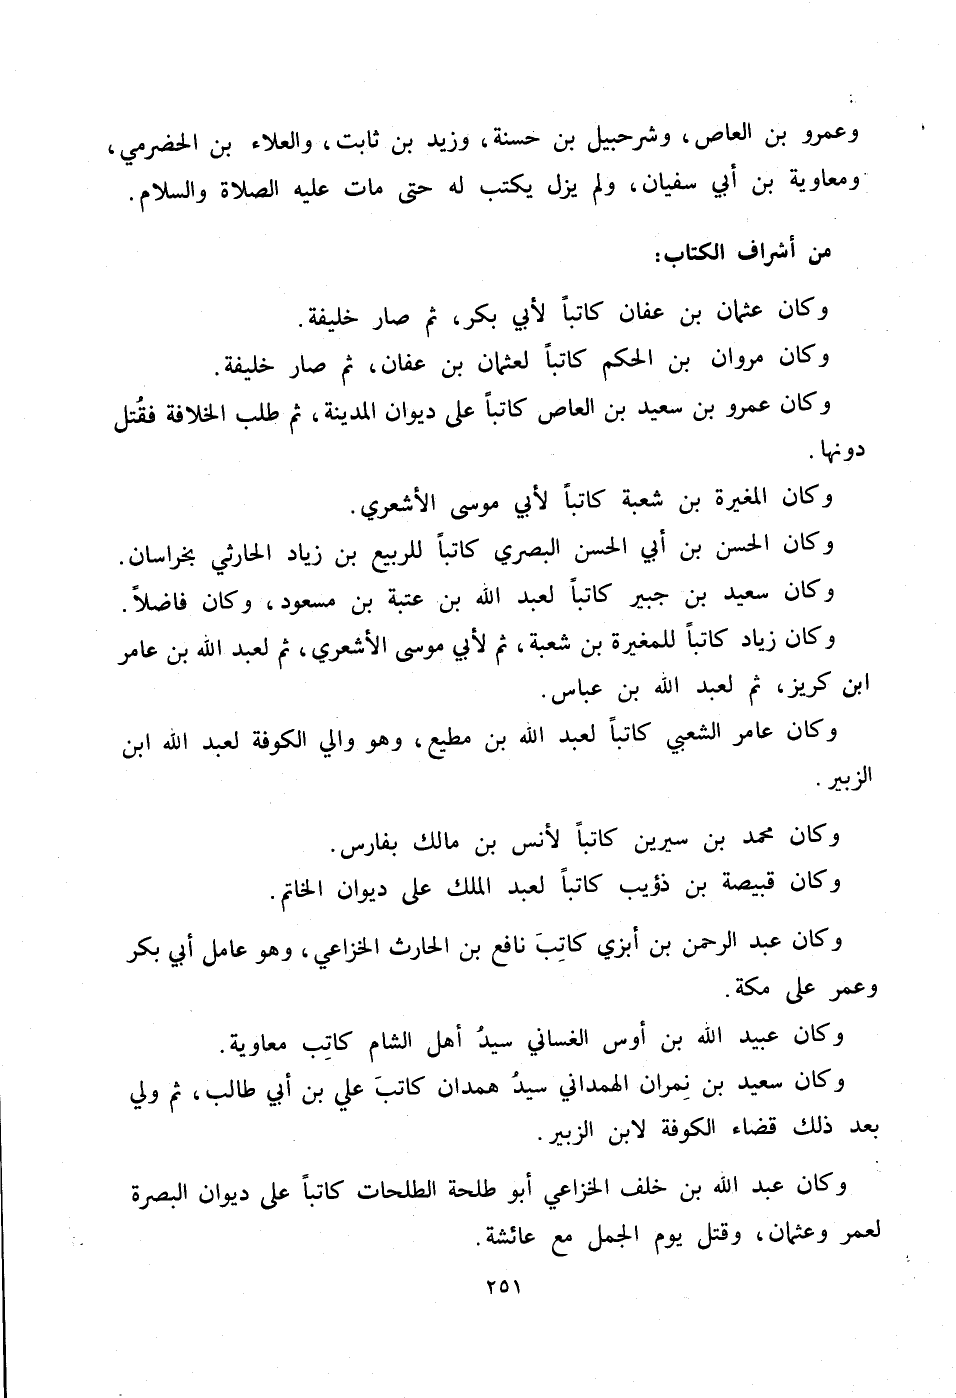 وعمرو بن العاص، وشرحبيل بن حسنة، وزيد بن ثابت، والعلاء بن الحضرمي،
ومعاوية بن أبي سفيان، ولم يزل يكتب له حتى مات عليه الصلاة والسلام.
من أشراف الكتاب:
وكان عثمان بن عفان كاتباً لأبي بكر، ثم صار خليفة.
وكان مروان بن الحكم كاتباً لعثمان بن عفان، ثم صار خليفة.
وكان عمرو بن سعيد بن العاص كاتباً على ديوان المدينة، ثم طلب الخلافة فقُتل
دونها.
وكان المغيرة بن شعبة كاتباً لأبي موسى الأشعري.
وكان الحسن بن أبي الحسن البصري كاتباً للربيع بن زياد الحارثي بخراسان.
وكان سعيد بن جبير كاتباً لعبد الله بن عتبة بن مسعود، وكان فاضلاً.
وكان زياد كاتباً للمغيرة بن شعبة، ثم لأبي موسى الأشعري، ثم لعبد الله بن عامر
ابن كريز، ثم لعبد الله بن عباس.
وكان عامر الشعبي كاتباً لعبد الله بن مطيع، وهو والي الكوفة لعبد الله ابن
الزبير.
وكان محمد بن سيرين كاتباً لأنس بن مالك بفارس.
وكان قبيصة بن ذؤيب كاتباً لعبد الملك على ديوان الخاتم.
وكان عبد الرحمن بن أبزي كاتِبَ نافع بن الحارث الخزاعي، وهو عامل أبي بكر
وعمر على مكة.
وكان عبيد الله بن أوس الغساني سيدُ أهل الشام كاتِب معاوية.
وكان سعيد بن نِمران الهمداني سيدُ همدان كاتبَ علي بن أبي طالب، ثم ولي
بعد ذلك قضاء الكوفة لابن الزبير.
وكان عبد الله بن خلف الخزاعي أبو طلحة الطلحات كاتباً على ديوان البصرة
لعمر وعثمان، وقتل يوم الجمل مع عائشة.
٢٥١